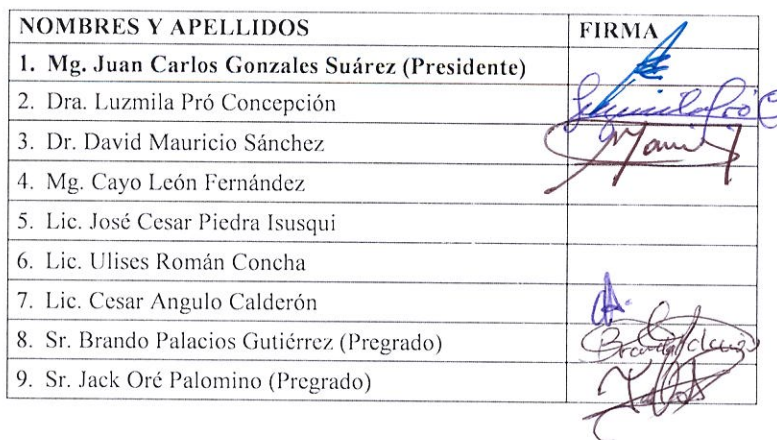 NOMBRES Y APELLIDOS FIRMA
1. Mg. Juan Carlos Gonzales Suárez (Presidente)
2. Dra. Luzmila Pró Concepción
3. Dr. David Mauricio Sánchez
4. Mg. Cayo León Fernández
5. Lic. José Cesar Piedra Isusqui
6. Lic. Ulises Román Concha
7. Lic. Cesar Angulo Calderón
8. Sr. Brando Palacios Gutiérrez (Pregrado)
9. Sr. Jack Oré Palomino (Pregrado)